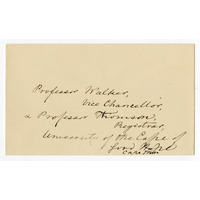 Professor Walker,
Vice Chancellor,
a Professor Thomson,
Registrar,
University of the Cape of
Good Hope
Cape Town